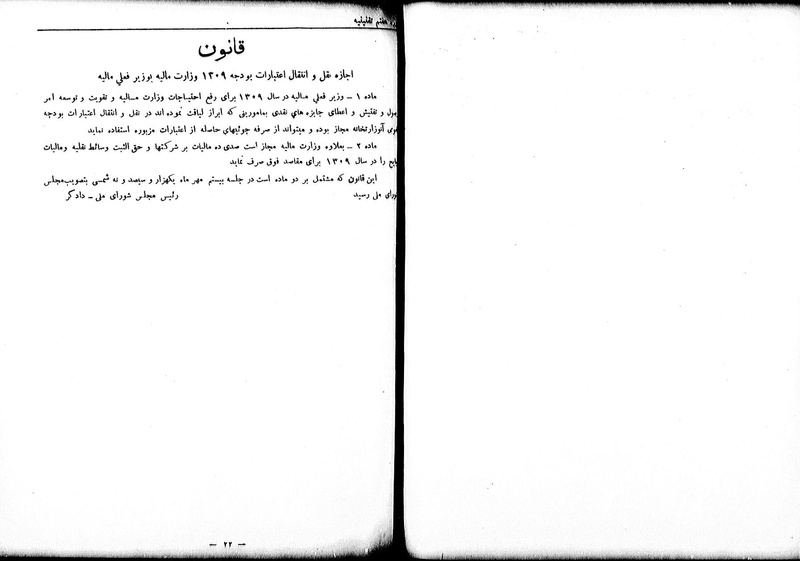 هفتم تقنینیه
قانون
اجازه نقل و انتقال اعتبارات بودجه ۱۳۰۹ وزارت مالیه بوزیر فعلی مالیه
ماده ۱ – وزیر فعلی مالیه در سال ۱۳۰۹ برای رفع احتیاجات وزارت مالیه و تقویت و توسعه امر
و تفتیش و اعطای جایزه های نقدی بمامورینی که ابراز لیاقت نموده اند در نقل و انتقال اعتبارات بودجه
آنوزارتخانه مجاز بوده و میتواند از صرفه جوئیهای حاصله از اعتبارات مزبوره استفاده نماید
ماده ۲ – بعلاوه وزارت مالیه مجاز است صدی ده مالیات بر شرکتها و حق الثبت وسائط نقلیه ومالیات
را در سال ۱۳۰۹ برای مقاصد فوق صرف نماید
این قانون که مشتمل بر دو ماده است در جلسه بیستم مهر ماه یکهزار و سیصد و نه شمسی بتصویب مجلس
شورای ملی رسید رئیس مجلس شورای ملی – دادگر
– ۲۲ –